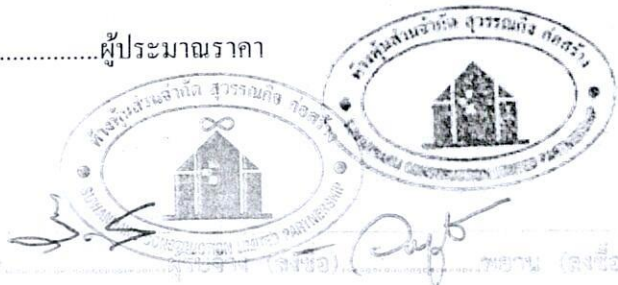 ...................ผู้ประมาณราคา
ห้างหุ้นส่วนจำกัด สุวรรณกิจ ก่อสร้าง
CONSTRUCTION LIMITED PARTNERSHIP
ห้างหุ้นส่วนจำกัด สุวรรณกิจ ก่อสร้าง
CONSTRUCTION LIMITED PARTNERSHIP
ผู้รับจ้าง (ลงชื่อ) พยาน (ลงชื่อ